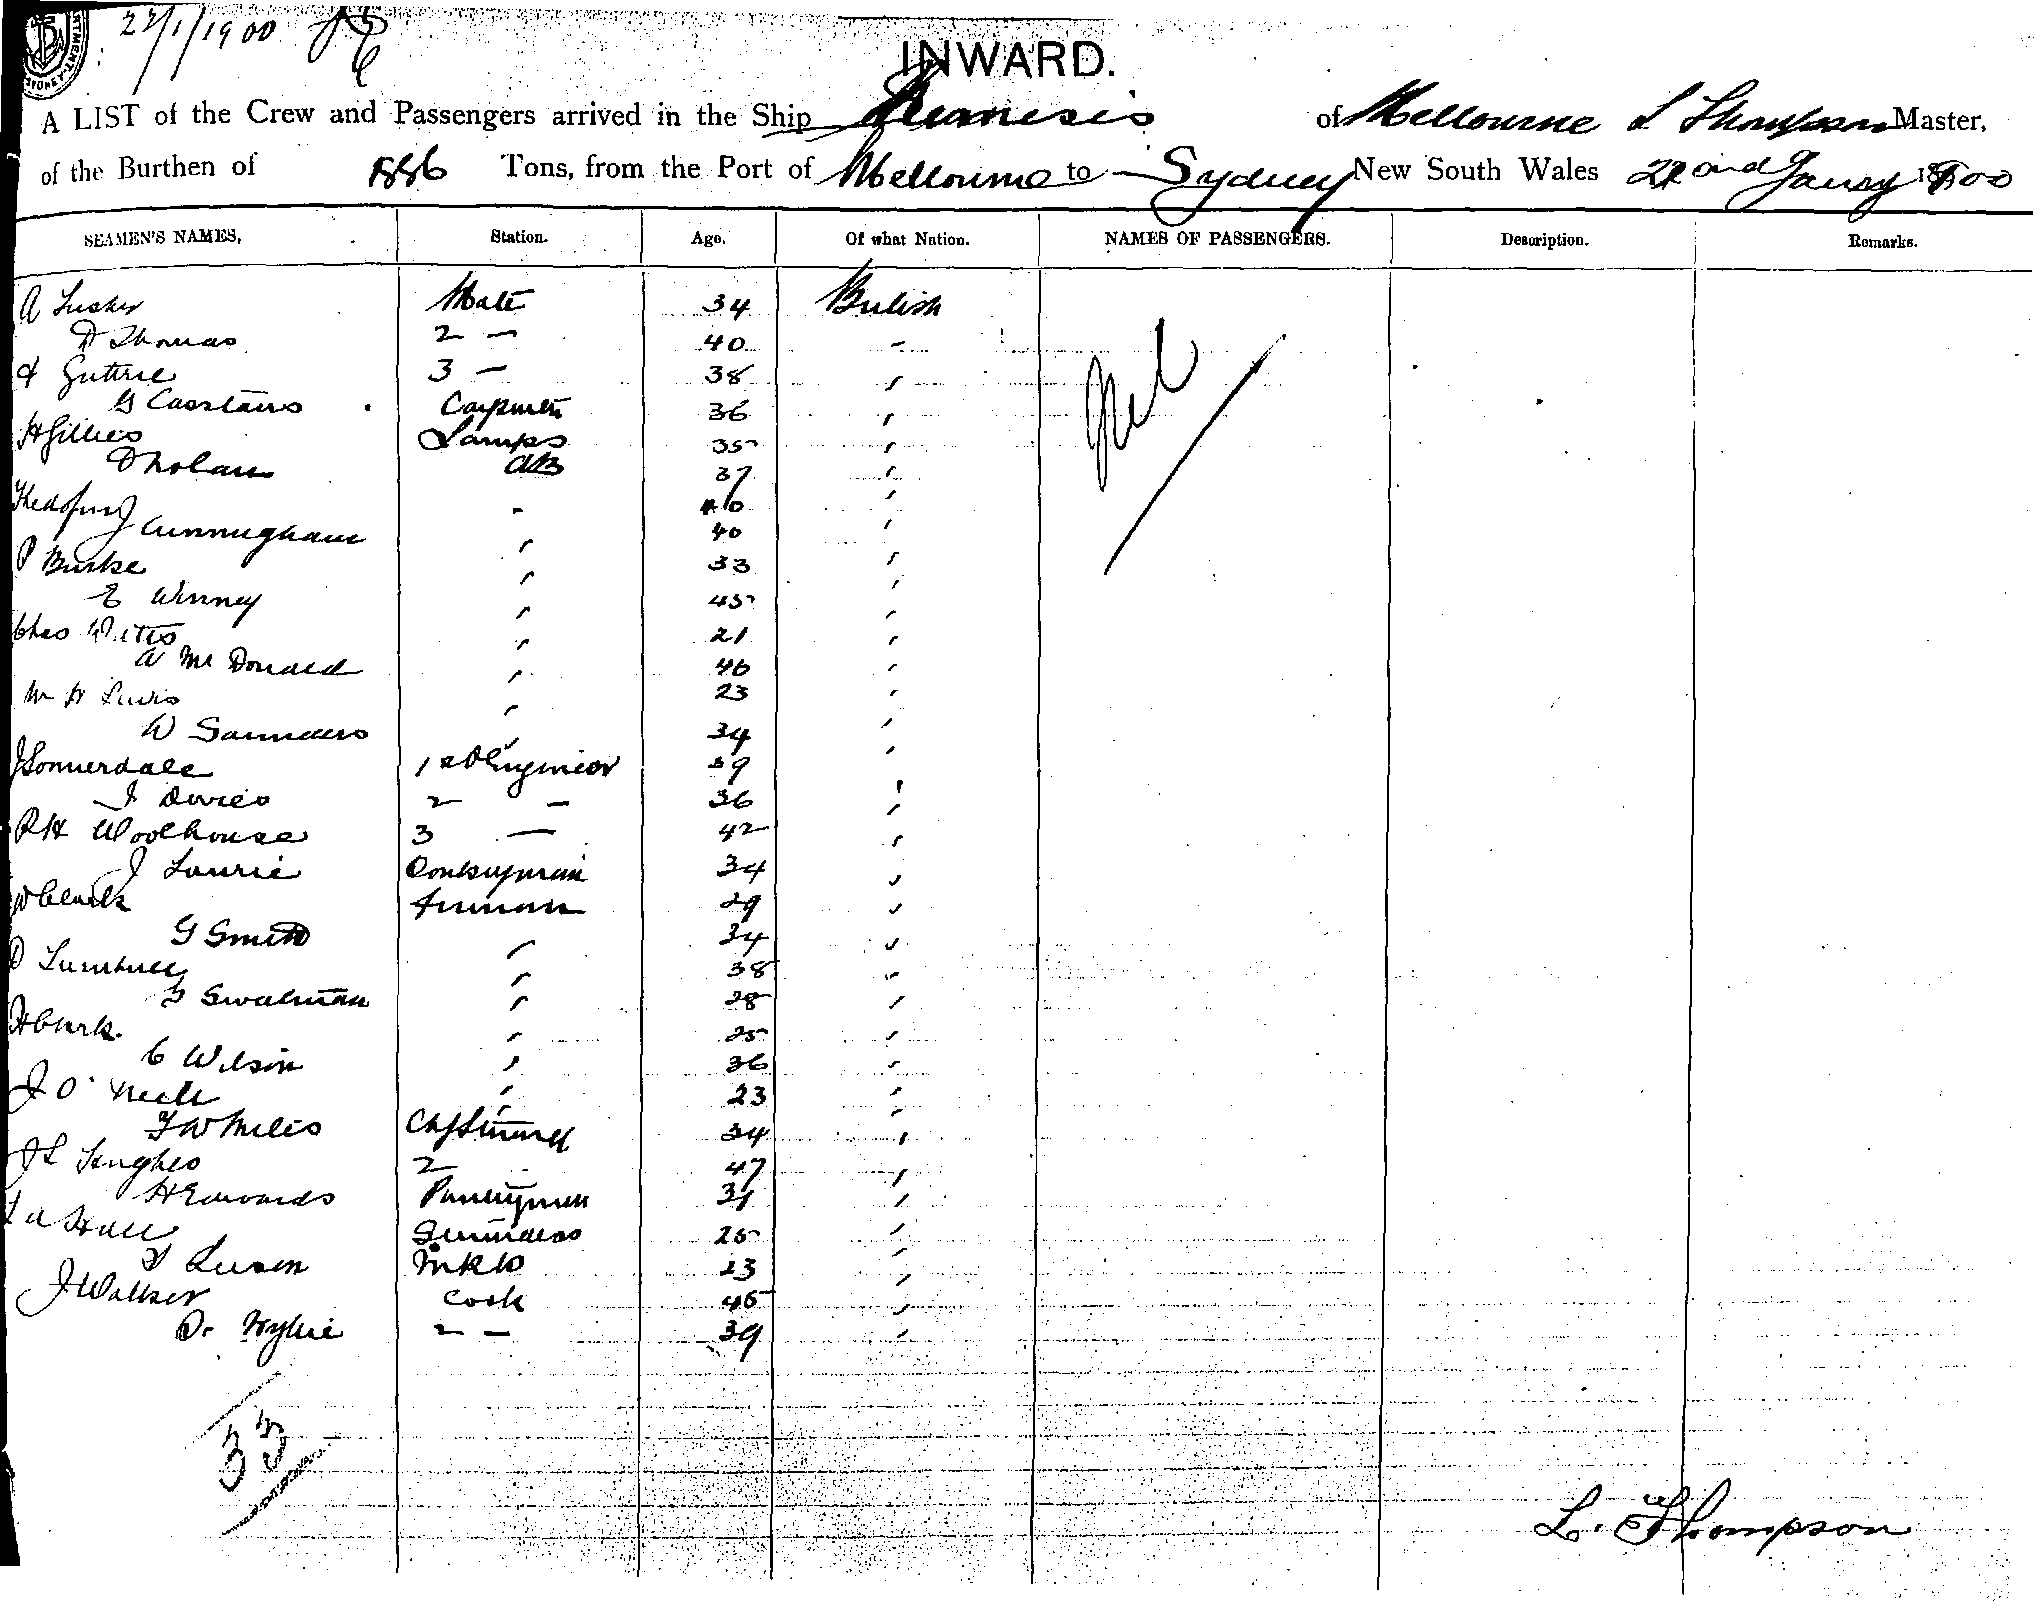 22/1/1900
INWARD.
A LIST of the Crew and Passengers arrived in the Ship Nemesis of Melbourne L Thompson Master,
of the Burthen of 1886 Tons, from the Port of Melbourne to Sydney New South Wales 22nd Janry 1900
SEAMEN'S NAMES, Station. Age. Of what Nation. NAMES OF PASSENGERS. Description. Remarks.
A Lusher Mate 34 British
D Thomas 2 — 40 "
Guthrie 3 — 38 "
G Casstairs Carpenter 36 "
H Gillies Lamps 35 "
D Nolan AB 37 "
- 40 "
J Cunningham " 40 "
P Burke " 33 "
E Winney " 45 "
Chas Watts " 21 "
A McDonald " 40 "
Wm H Lewis " 23 "
W Saunders " 34 "
J Sonnerdale 1st Engineer 39 "
J Davies 2 — 36 "
R H Woolhouse 3 — 42 "
J Laurie Donkeyman 34 "
W Clark Fireman 29 "
G Smith " 34 "
D Turnbull " 38 "
G Swalman " 28 "
H Clark. " 25 "
C Wilson " 36 "
J O'Neill " 23 "
F W Miles 34 "
J L Hughes 2 47 "
H Edwards Pantryman 31 "
A Hall 25 "
Luson 23 "
J Walker Cook 45 "
D. Wylie 2 — 39 "
Nil
33
L. Thompson